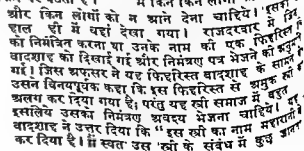 और किन लोगों को न आने देना चाहिये। इसका
हाल ही में यहां देखा गया। राजदरबार में
को निमंत्रित करना था उनके नाम की एक फ़िहरिस्त
बादशाह को दिखाई गई और निमंत्रण पत्र भेजने को
गई। जिस अफ़सर ने यह फ़िहरिस्त बादशाह के सामने
उसने विनयपूर्वक कहा कि इस फ़िहरिस्त से अमुक स्त्री
अलग कर दिया गया है; परंतु यह स्त्री समाज में बहुत
इसलिये उसका निमंत्रण अवश्य भेजना चाहिये।
बादशाह ने उत्तर दिया कि “इस स्त्री का नाम महारानी
कर दिया है। मैं स्वतः उस स्त्री के संबंध में कुछ